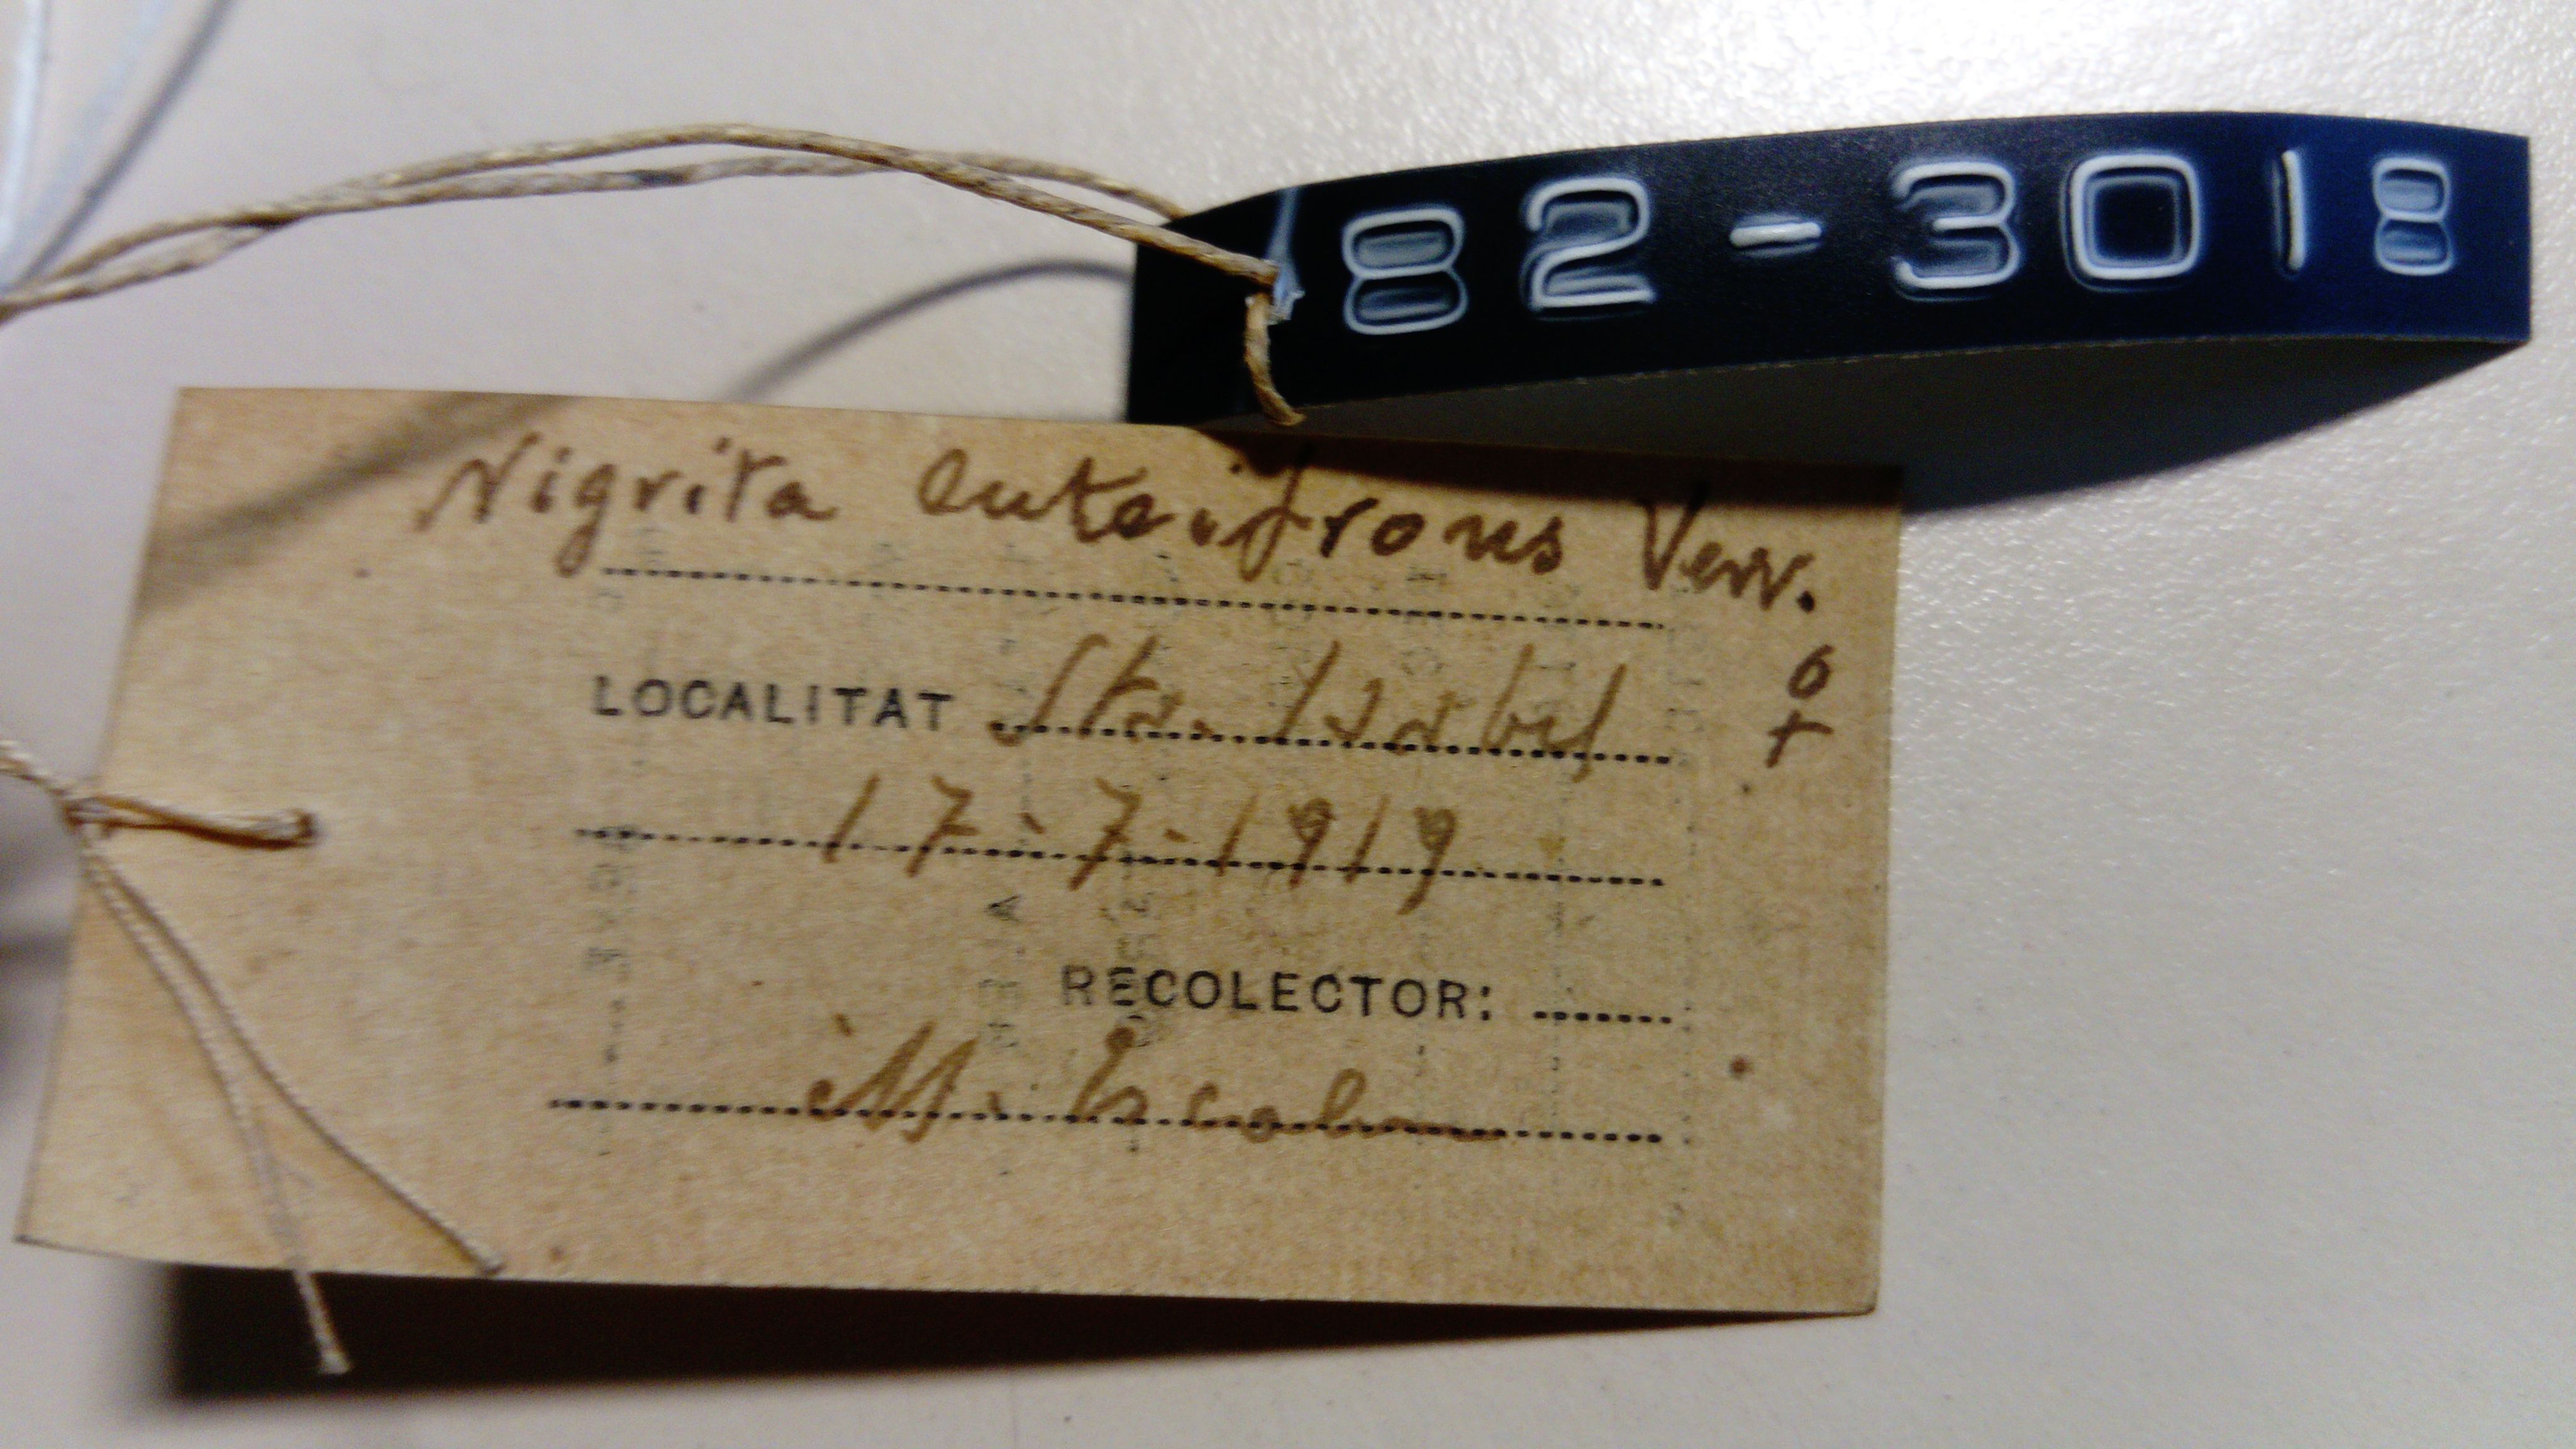 82-3018
Nigrita luteifrons Verr.
LOCALITAT Sta. Isabel ♀
17-7-1919
RECOLECTOR:
M. Escalera